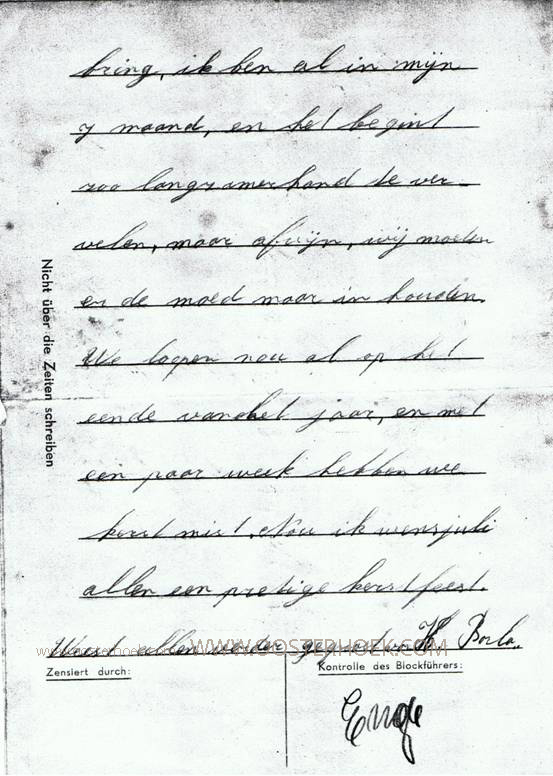 bring, ik ben al in mijn
7 maand, en het begint
zoo langzamerhand te ver-
velen, maar afijn, wij moeten
er de moed maar in houden.
We loopen nou al op het
eende vanhet jaar, en met
een paar week hebben we
kerst mist. Nou ik wens juli
allen een pretige kerstfeest.
Weest allen weder gegroet van H. Borla..
www.oosterhoek.com WWW.OOSTERHOEK.COM
Nicht über die Zeiten schreiben
Zensiert durch:
Kontrolle des Blockführers: